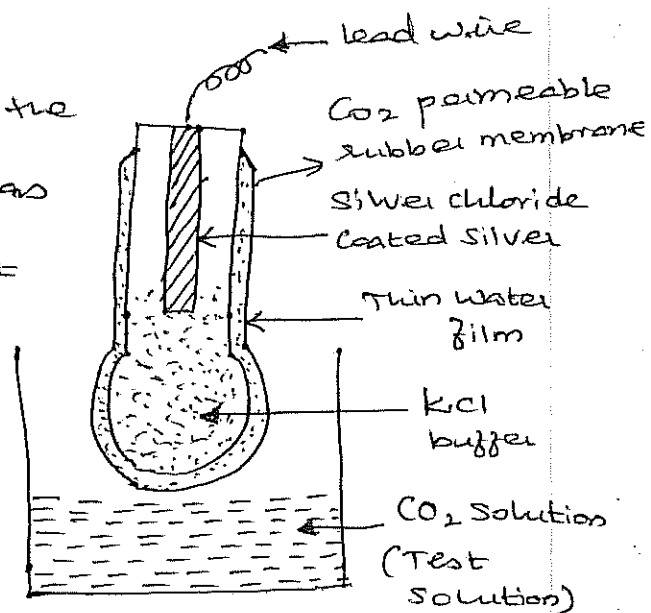 the
as
=
lead wire
CO2 permeable
rubber membrane
Silver chloride
Coated Silver
Thin water
film
KCl
buffer
CO2 Solution
(Test
Solution)